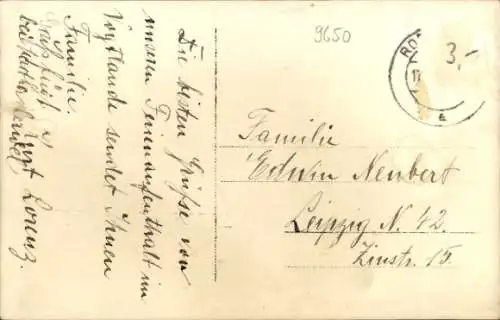 9650
3,-
RO
Die besten Grüße von
unserem Ferienaufenthalt im
Vogtlande sendet Ihnen
Familie
Kurt Lorenz.
Familie
Edwin Neubert
Leipzig N. 42
Zinstr. 15.